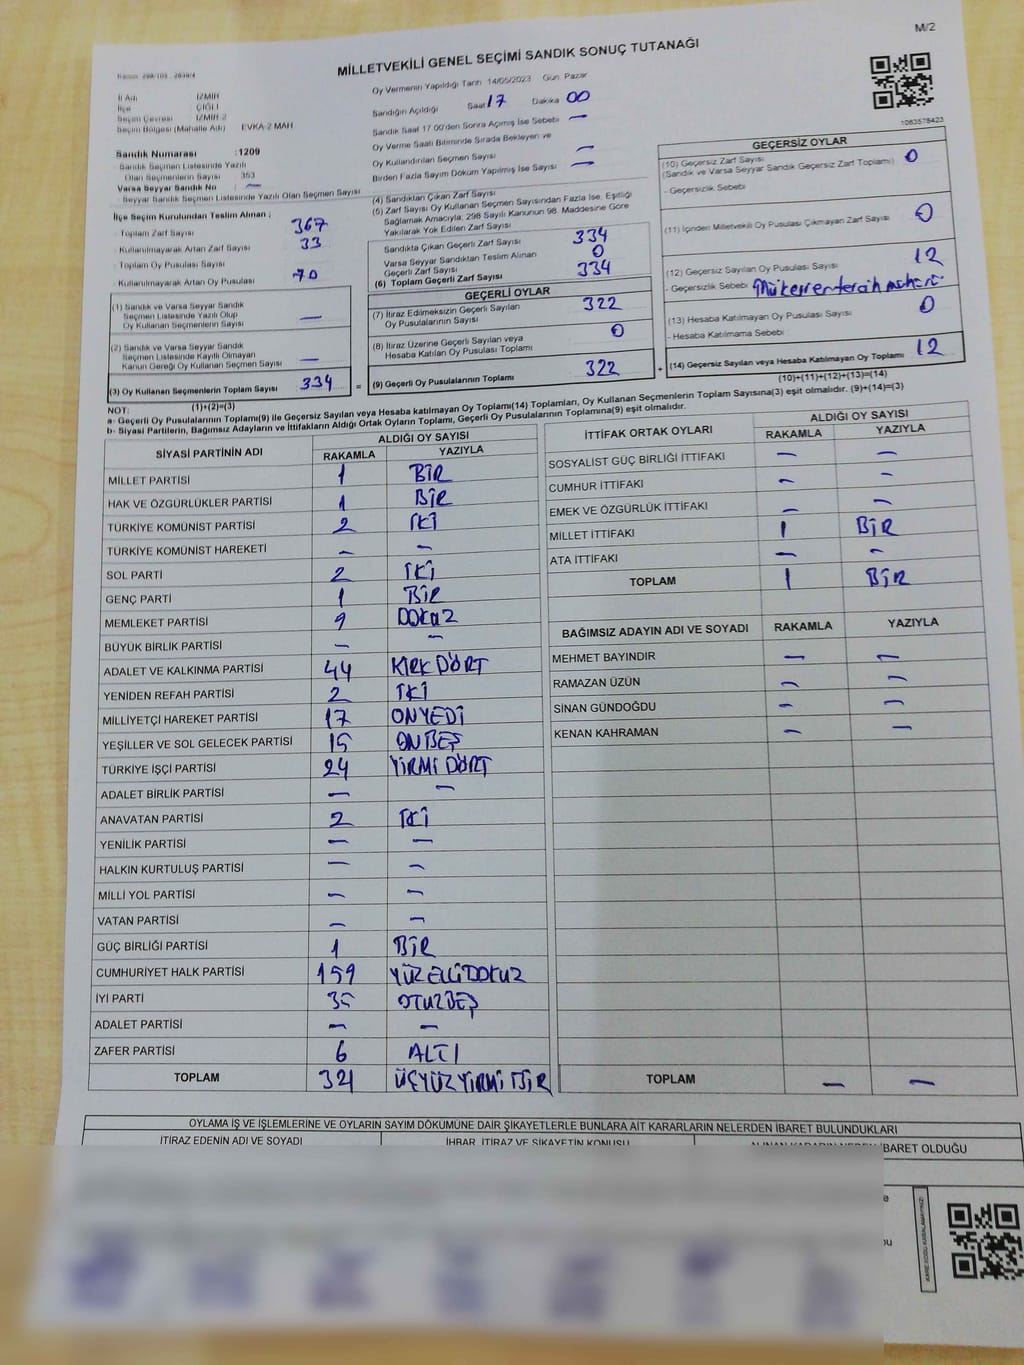 M/2
MİLLETVEKİLİ GENEL SEÇİMİ SANDIK SONUÇ TUTANAĞI
İl Adı İZMİR
İlçe ÇİĞLİ
Seçim Çevresi İZMİR 2
Seçim Bölgesi (Mahalle Adı) EVKA-2 MAH
Sandık Numarası :1209
Sandık Seçmen Listesinde Yazılı
Olan Seçmenlerin Sayısı 353
Varsa Seyyar Sandık No —
Seyyar Sandık Seçmen Listesinde Yazılı Olan Seçmen Sayısı
Oy Vermenin Yapıldığı Tarih 14/05/2023 Gün: Pazar
Sandığın Açıldığı Saat 17 Dakika 00
Sandık Saat 17.00'den Sonra Açılmış İse Sebebi —
Oy Verme Saati Bitiminde Sırada Bekleyen ve
Oy Kullandırılan Seçmen Sayısı —
Birden Fazla Sayım Döküm Yapılmış İse Sayısı —
1083578423
İlçe Seçim Kurulundan Teslim Alınan ;
Toplam Zarf Sayısı 367
Kullanılmayarak Artan Zarf Sayısı 33
Toplam Oy Pusulası Sayısı
Kullanılmayarak Artan Oy Pusulası 70
(1) Sandık ve Varsa Seyyar Sandık
Seçmen Listesinde Yazılı Olup
Oy Kullanan Seçmenlerin Sayısı —
(2) Sandık ve Varsa Seyyar Sandık
Seçmen Listesinde Kayıtlı Olmayan
Kanun Gereği Oy Kullanan Seçmen Sayısı —
(3) Oy Kullanan Seçmenlerin Toplam Sayısı 334
(1)+(2)=(3)
(4) Sandıktan Çıkan Zarf Sayısı
(5) Zarf Sayısı Oy Kullanan Seçmen Sayısından Fazla İse, Eşitliği
Sağlamak Amacıyla, 298 Sayılı Kanunun 98. Maddesine Göre
Yakılarak Yok Edilen Zarf Sayısı
Sandıkta Çıkan Geçerli Zarf Sayısı 334
Varsa Seyyar Sandıktan Teslim Alınan
Geçerli Zarf Sayısı 0
(6) Toplam Geçerli Zarf Sayısı 334
GEÇERLİ OYLAR
(7) İtiraz Edilmeksizin Geçerli Sayılan
Oy Pusulalarının Sayısı 322
(8) İtiraz Üzerine Geçerli Sayılan veya
Hesaba Katılan Oy Pusulası Toplamı 0
= (9) Geçerli Oy Pusulalarının Toplamı 322
GEÇERSİZ OYLAR
(10) Geçersiz Zarf Sayısı 0
(Sandık ve Varsa Seyyar Sandık Geçersiz Zarf Toplamı)
- Geçersizlik Sebebi
(11) İçinden Milletvekili Oy Pusulası Çıkmayan Zarf Sayısı 0
(12) Geçersiz Sayılan Oy Pusulası Sayısı 12
- Geçersizlik Sebebi Mükerrer tercih mührü
(13) Hesaba Katılmayan Oy Pusulası Sayısı 0
- Hesaba Katılmama Sebebi :
+ (14) Geçersiz Sayılan veya Hesaba Katılmayan Oy Toplamı 12
(10)+(11)+(12)+(13)=(14)
NOT:
a- Geçerli Oy Pusulalarının Toplamı(9) ile Geçersiz Sayılan veya Hesaba katılmayan Oy Toplamı(14) Toplamları, Oy Kullanan Seçmenlerin Toplam Sayısına(3) eşit olmalıdır. (9)+(14)=(3)
b- Siyasi Partilerin, Bağımsız Adayların ve İttifakların Aldığı Ortak Oyların Toplamı, Geçerli Oy Pusulalarının Toplamına(9) eşit olmalıdır.
SİYASİ PARTİNİN ADI ALDIĞI OY SAYISI
RAKAMLA YAZIYLA
MİLLET PARTİSİ 1 BİR
HAK VE ÖZGÜRLÜKLER PARTİSİ 1 BİR
TÜRKİYE KOMÜNİST PARTİSİ 2 İKİ
TÜRKİYE KOMÜNİST HAREKETİ — —
SOL PARTİ 2 İKİ
GENÇ PARTİ 1 BİR
MEMLEKET PARTİSİ 9 DOKUZ
BÜYÜK BİRLİK PARTİSİ — —
ADALET VE KALKINMA PARTİSİ 44 KIRK DÖRT
YENİDEN REFAH PARTİSİ 2 İKİ
MİLLİYETÇİ HAREKET PARTİSİ 17 ONYEDİ
YEŞİLLER VE SOL GELECEK PARTİSİ 15 ONBEŞ
TÜRKİYE İŞÇİ PARTİSİ 24 YİRMİ DÖRT
ADALET BİRLİK PARTİSİ — —
ANAVATAN PARTİSİ 2 İKİ
YENİLİK PARTİSİ — —
HALKIN KURTULUŞ PARTİSİ — —
MİLLİ YOL PARTİSİ — —
VATAN PARTİSİ — —
GÜÇ BİRLİĞİ PARTİSİ 1 BİR
CUMHURİYET HALK PARTİSİ 159 YÜZ ELLİ DOKUZ
İYİ PARTİ 35 OTUZBEŞ
ADALET PARTİSİ — —
ZAFER PARTİSİ 6 ALTI
TOPLAM 321 ÜÇYÜZ YİRMİ BİR
İTTİFAK ORTAK OYLARI ALDIĞI OY SAYISI
RAKAMLA YAZIYLA
SOSYALİST GÜÇ BİRLİĞİ İTTİFAKI — —
CUMHUR İTTİFAKI — —
EMEK VE ÖZGÜRLÜK İTTİFAKI — —
MİLLET İTTİFAKI 1 BİR
ATA İTTİFAKI — —
TOPLAM 1 BİR
BAĞIMSIZ ADAYIN ADI VE SOYADI RAKAMLA YAZIYLA
MEHMET BAYINDIR — —
RAMAZAN ÜZÜN — —
SİNAN GÜNDOĞDU — —
KENAN KAHRAMAN — —
TOPLAM — —
OYLAMA İŞ VE İŞLEMLERİNE VE OYLARIN SAYIM DÖKÜMÜNE DAİR ŞİKAYETLERLE BUNLARA AİT KARARLARIN NELERDEN İBARET BULUNDUKLARI
İTİRAZ EDENİN ADI VE SOYADI İHBAR, İTİRAZ VE ŞİKAYETİN KONUSU ALINAN KARARIN NEDEN İBARET OLDUĞU